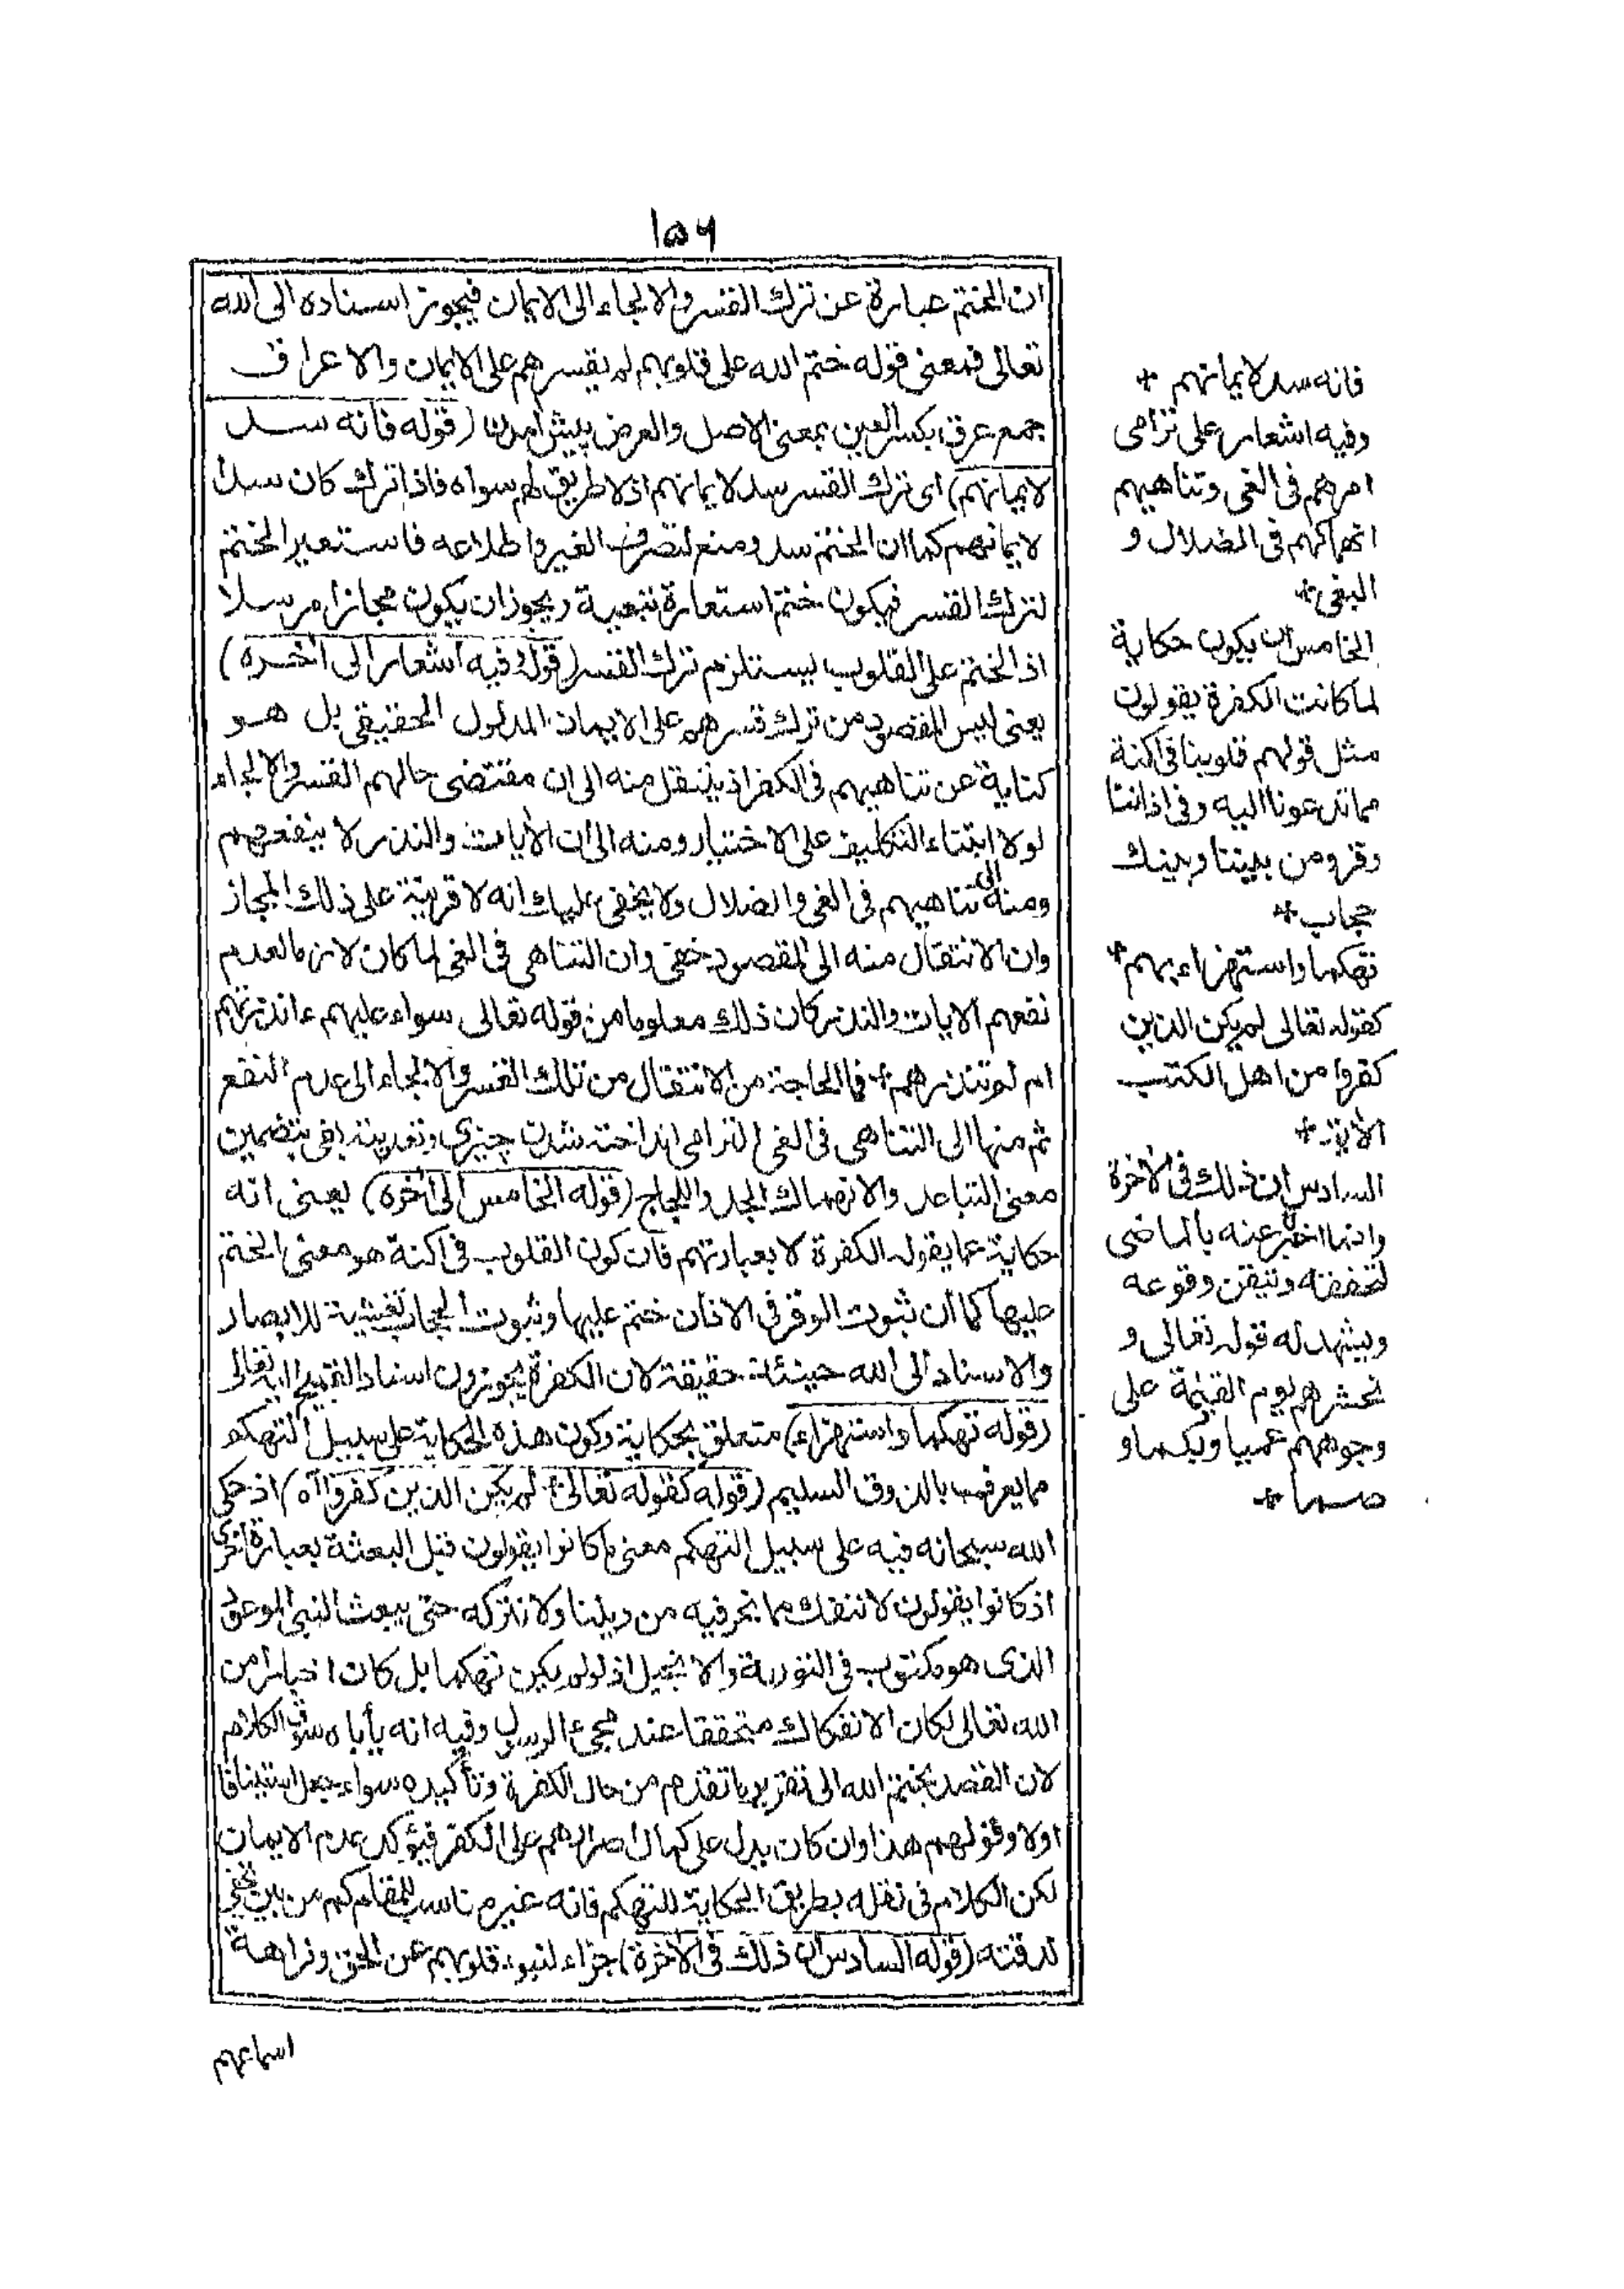 ١٥٦
ان الختم عبارة عن ترك القسر والالجاء الى الايمان فيجوز اسناده الى الله
تعالى فمعنى قوله ختم الله على قلوبهم لم يقسرهم على الايمان والاعراق
جمع عرق بكسر العين بمعنى الاصل والعرض پيش آمدن (قوله فانه سد
لايمانهم) اى ترك القسر سد لايمانهم اذ لا طريق لهم سواه فاذا ترك كان سدا
لايمانهم كما ان الختم سد ومنع لتصرف الغير واطلاعه فاستعير الختم
لترك القسر فيكون ختم استعارة تبعية ويجوز ان يكون مجازا مرسلا
اذ الختم على القلوب يستلزم ترك القسر (قوله وفيه اشعار الى آخره)
يعنى ليس المقصود من ترك قسرهم على الايمان المدلول الحقيقى بل هو
كناية عن تناهيهم فى الكفر اذ ينتقل منه الى ان مقتضى حالهم القسر والالجاء
لولا ابتناء التكليف على الاختيار ومنه الى ان الأيات والنذر لا ينفعهم
ومنه الى تناهيهم فى الغى والضلال ولا يخفى عليك انه لا قرينة على ذلك المجاز
وان الانتقال منه الى المقصود خفى وان التناهى فى الغى لما كان لازما لعدم
نفعهم الايات والنذر كان ذلك معلوما من قوله تعالى سواء عليهم ءانذرتهم
ام لم تنذرهم * فما الحاجة من الانتقال من تلك القسر والالجاء الى عدم النفع
ثم منها الى التناهى فى الغى الترامى انداخته شدن چيزى وتعديته بفى بتضمين
معنى التباعد والانهماك الجد واللجاج (قوله الخامس الى آخره) يعنى انه
حكاية عما يقوله الكفرة لا بعبارتهم فان كون القلوب فى اكنة هو معنى الختم
عليها كما ان ثبوت الوقر فى الاذان ختم عليها وثبوت الحجاب تغشية للابصار
والاسناد الى الله حينئذ حقيقة لان الكفرة يجوزون اسناد القبيح اليه تعالى
(قوله تهكما واستهزاء) متعلق بحكاية وكون هذه الحكاية على سبيل التهكم
مما يعرف بالذوق السليم (قوله كقوله تعالى * لم يكن الذين كفروا آه) اذ حكى
الله سبحانه فيه على سبيل التهكم معنى ما كانوا يقولون قبل البعثة بعبارة اخرى
اذ كانوا يقولون لا ننفك مما نحن فيه من ديننا ولا نتركه حتى يبعث النبى الموعود
الذى هو مكتوب فى التورية والانجيل اذ لو لم يكن تهكما بل كان اخبارا من
الله تعالى لكان الانفكاك متحققا عند مجىء الرسول وفيه انه يأباه سوق الكلام
لان القصد بختم الله الى تقرير ما تقدم من حال الكفرة وتأكيده سواء جعل استينافا
اولا وقولهم هذا وان كان يدل على كمال اصرارهم على الكفر فيؤكد عدم الايمان
لكن الكلام فى نقله بطريق الحكاية للتهكم فانه غير مناسب للمقام كم من بين
لدقته (قوله السادس ان ذلك فى الآخرة) جزاء لنبوء قلوبهم عن الحق ونزاهة
اسماعهم
فانه سد لايمانهم *
وفيه اشعار على ترامى
امرهم فى الغى وتناهيهم
انهماكهم فى الضلال و
البغى *
الخامس ان يكون حكاية
لما كانت الكفرة يقولون
مثل قولهم قلوبنا فى اكنة
مما تدعونا اليه وفى اذاننا
وقر ومن بيننا وبينك
حجاب *
تهكما واستهزاء بهم *
كقوله تعالى لم يكن الذين
كفروا من اهل الكتب
الآية *
السادس ان ذلك فى الآخرة
وانما اخبر عنه بالماضى
لتحققه وتيقن وقوعه
ويشهد له قوله تعالى و
نحشرهم يوم القيمة على
وجوههم عميا وبكما و
صما *